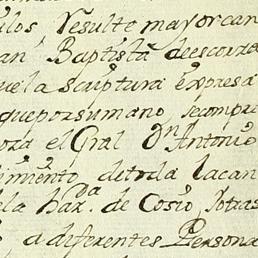 ulos, resulte mayor can
an Baptista de escorza
uela scriptura expresa
que por su mano, se compre
ora el Gral Dn Antonio
imiento, de toda la can
ela haz.a de Cosio, y otras
a diferentes Persona